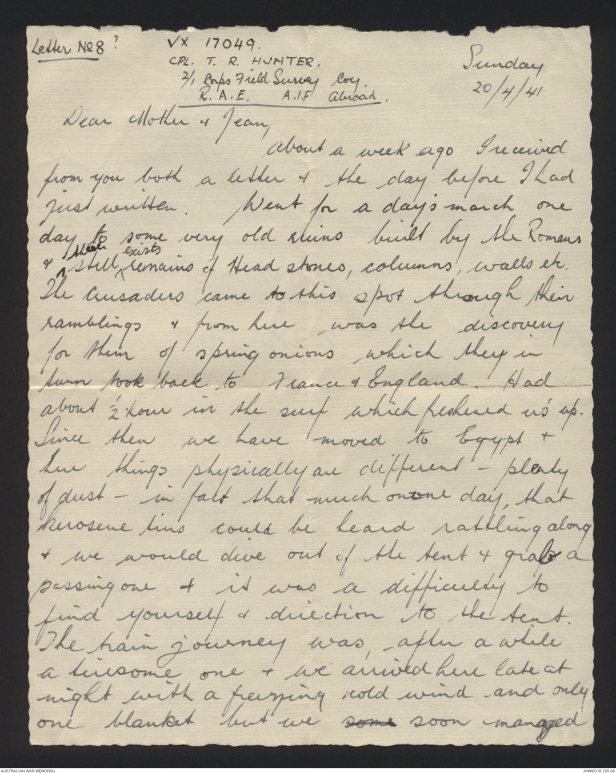 Letter No 8 ?
VX 17049.
CPL. T. R. HUNTER.
2/1 Corps Field Survey Coy.
R.A.E. A.I.F Abroad.
Sunday
20/4/41
Dear Mother & Jean,
About a week ago I received
from you both a letter & the day before I had
just written. Went for a day's march one
day to some very old ruins built by the Romans
& there still exists remains of Head stones, columns, walls etc.
The Crusaders came to this spot through their
ramblings & from here was the discovery
for them of spring onions which they in
turn took back to France & England. Had
about ½ hour in the surf which freshened us up.
Since then we have moved to Egypt &
here things physically are different - plenty
of dust - in fact that much on one day, that
kerosene tins could be heard rattling along
& we would dive out of the tent & grab a
passing one & it was a difficulty to
find yourself & direction to the tent.
The train journey was, after a while
a tiresome one & we arrived here late at
night with a freezing cold wind and only
one blanket but we some soon managed
AUSTRALIAN WAR MEMORIAL